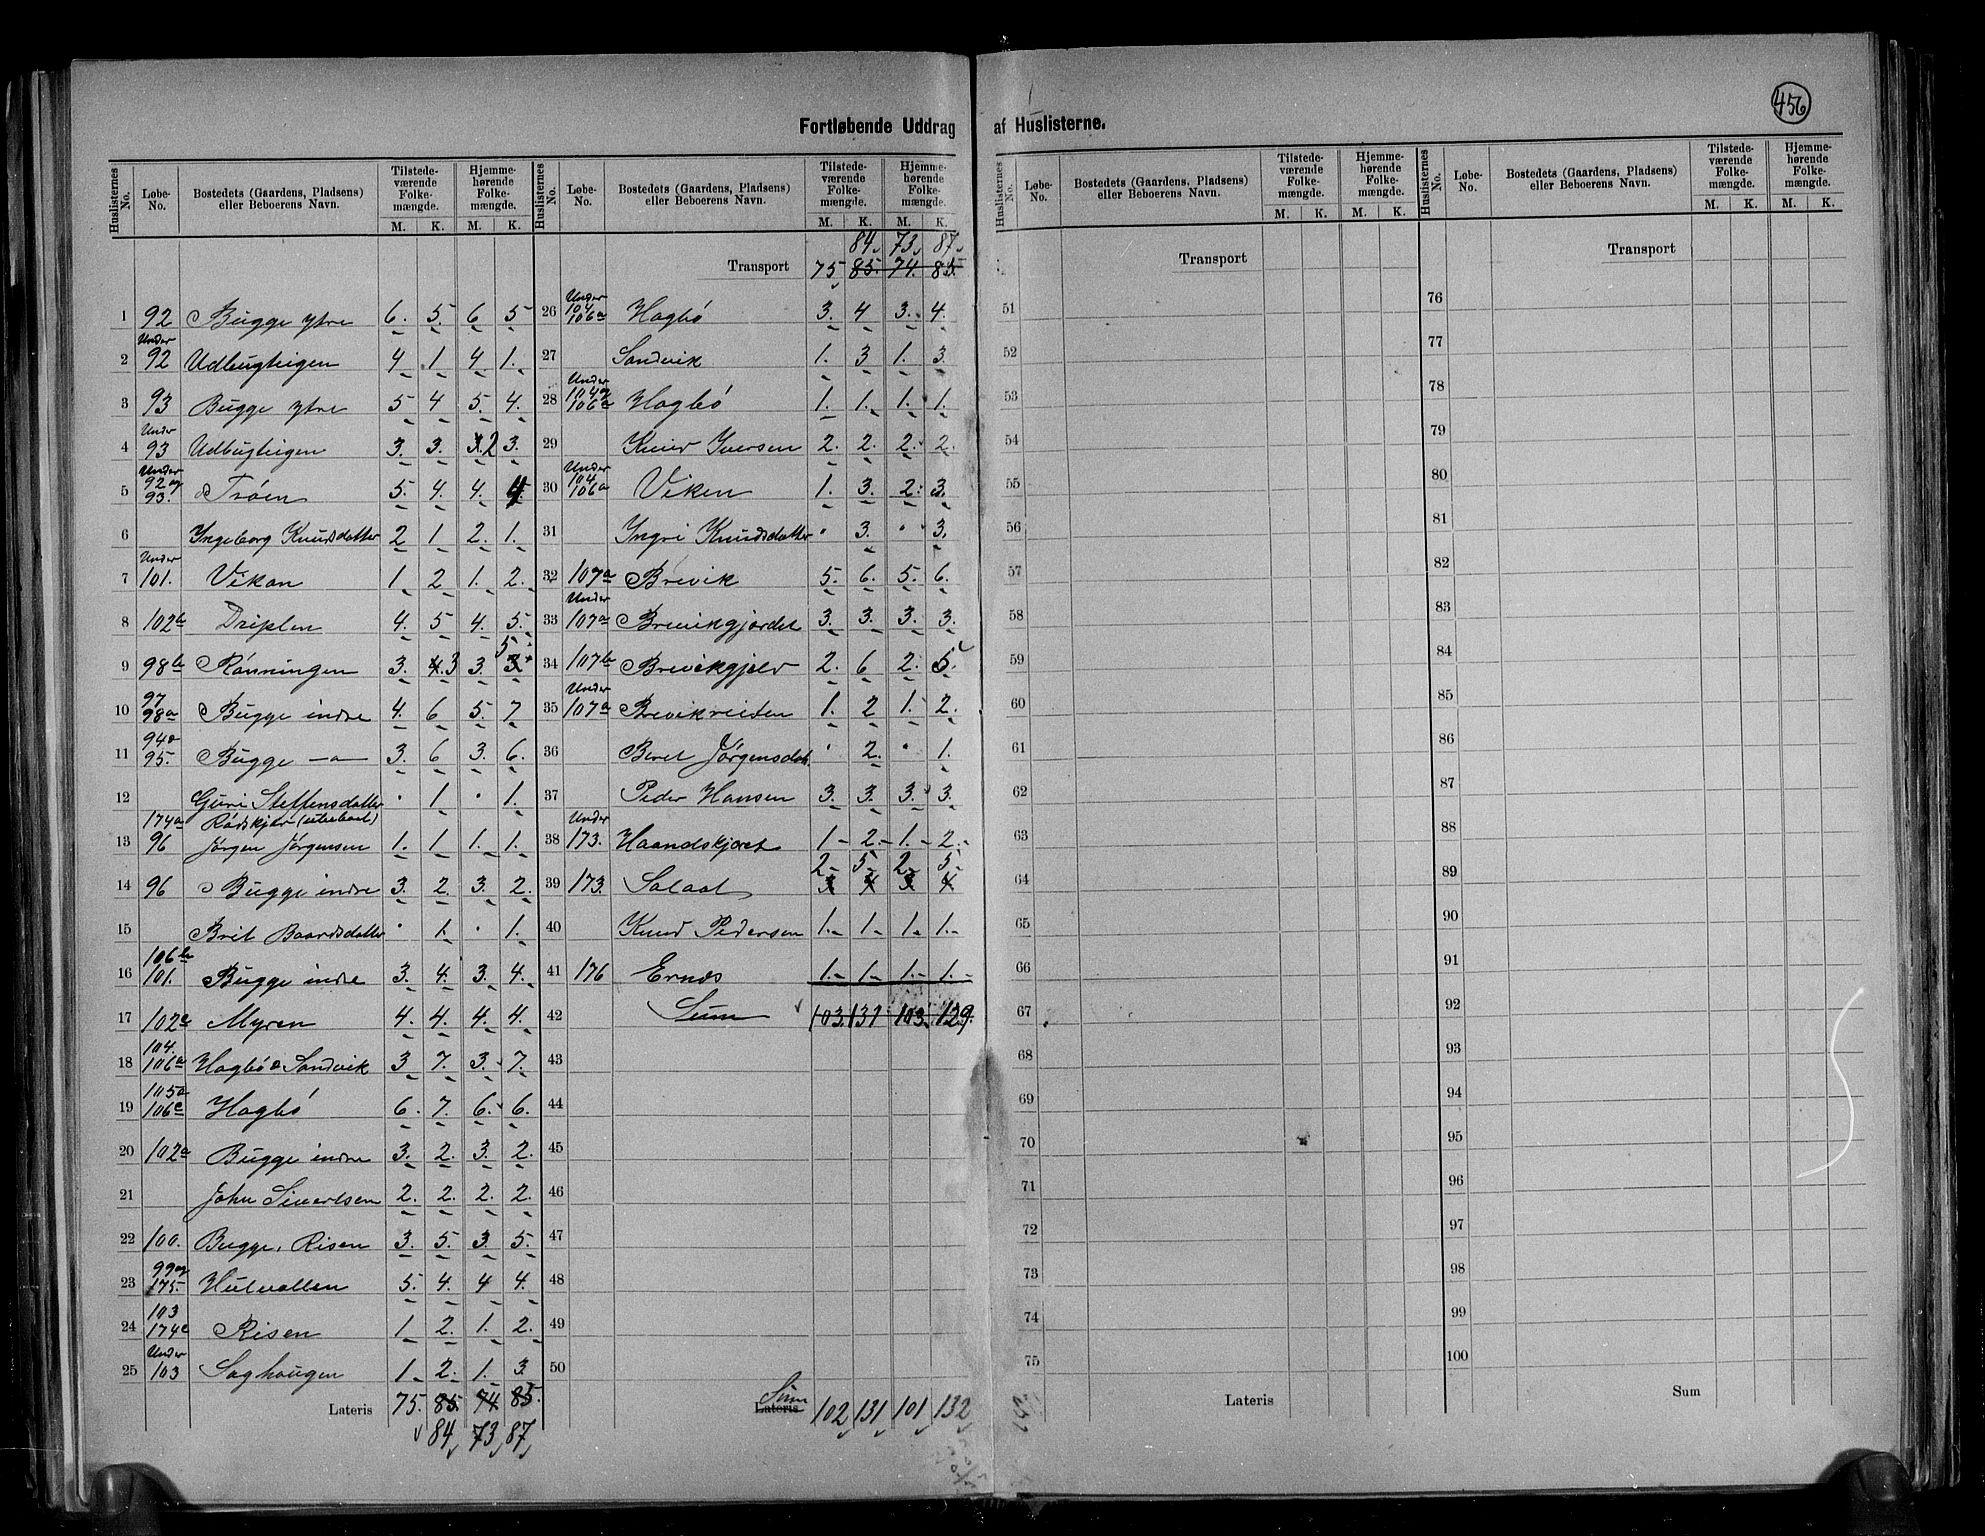 456
Fortløbende Uddrag af Huslisterne.
Huslisternes No. Løbe-No. Bostedets (Gaardens, Pladsens) eller Beboerens Navn. Tilstedeværende Folkemængde. M. K. Hjemmehørende Folkemængde. M. K.
1 92 Bugge ytre 6. 5. 6 5
2 Under 92 Udbugteigen 4 1 4 1.
3 93 Bugge ytre 5 4 5. 4.
4 Under 93 Udbugteigen 3. 3. 3. 2 3.
5 Under 92 og 93. Trøen 5. 4. 4. 4
6 Ingeborg Knudsdatter 2 1 2. 1.
7 Under 101. Vikan 1 2 1. 2.
8 102b Driplen 4. 5 4. 5.
9 98b Rønningen 3. 4. 3 3. 3 5
10 97 98a Bugge indre 4. 6 5. 7
11 94 o 95. Bugge — " — 3. 6 3. 6.
12 Guri Steffensdatter " 1 " 1.
13 174a 96 Rødskjær (ubeboet) Jørgen Jørgensen 1. 1 1. 1.
14 96 Bugge indre 3. 2. 3. 2.
15 Brit Baardsdatter " 1. " 1.
16 106b 101. Bugge indre 3. 4. 3. 4.
17 102c Myren 4. 4. 4. 4.
18 104. 106a Hagbø o Sandvik 3 7. 3. 7.
19 105a 106c Hagbø 6. 7. 6. 6.
20 102a Bugge indre 3. 2. 3. 2.
21 John Sivertsen 2. 2. 2. 2.
22 100. Bugge, Risen 3. 5. 3. 5.
23 99 og 175. Hulvallen 5. 4. 4 4.
24 103 174c Risen 1 2. 1. 2.
25 Under 103 Saghaugen 1 2. 1. 3.
Lateris 75. 85. 74 85.
84 73 87
Huslisternes No. Løbe-No. Bostedets (Gaardens, Pladsens) eller Beboerens Navn. Tilstedeværende Folkemængde. M. K. Hjemmehørende Folkemængde. M. K.
84 73 87
Transport 75 85. 74. 85.
26 Under 104 106a Hagbø 3. 4 3. 4.
27 Sandvik 1. 3 1. 3.
28 Under 104 og 106a Hagbø 1. 1. 1. 1.
29 Knud Iversen 2. 2. 2. 2.
30 Under 104 106a Viken 1. 3. 2. 3.
31 Ingri Knudsdatter " 3. " 3.
32 107a Brevik 5. 6. 5. 6.
33 Under 107a Brevikgjerdet 3. 3. 3. 3.
34 107b Brevikgjelv 2. 6 2. 5.
35 Under 107a Brevikreiten 1. 2 1. 2.
36 Beret Jørgensdat. " 2. " 1.
37 Peder Hansen 3. 3. 3. 3.
38 Under 173. Haandskjæret 1 - 2 - 1. - 2. -
2 - 5 - 2 - 5 -
39 173. Salaat 3 4 3 4
40 Knud Pedersen 1. - 1 - 1. - 1. -
41 176 Ernæs 1. - 1. - 1. - 1. -
42 Sum 103. 131 103. 129.
43
44
45
46
47
48
49
50
Sum
Lateris 102 131 101 132
Huslisternes No. Løbe-No. Bostedets (Gaardens, Pladsens) eller Beboerens Navn. Tilstedeværende Folkemængde. M. K. Hjemmehørende Folkemængde. M. K.
Transport
51
52
53
54
55
56
57
58
59
60
61
62
63
64
65
66
67
68
69
70
71
72
73
74
75
Lateris
Huslisternes No. Løbe-No. Bostedets (Gaardens, Pladsens) eller Beboerens Navn. Tilstedeværende Folkemængde. M. K. Hjemmehørende Folkemængde. M. K.
Transport
76
77
78
79
80
81
82
83
84
85
86
87
88
89
90
91
92
93
94
95
96
97
98
99
100
Sum